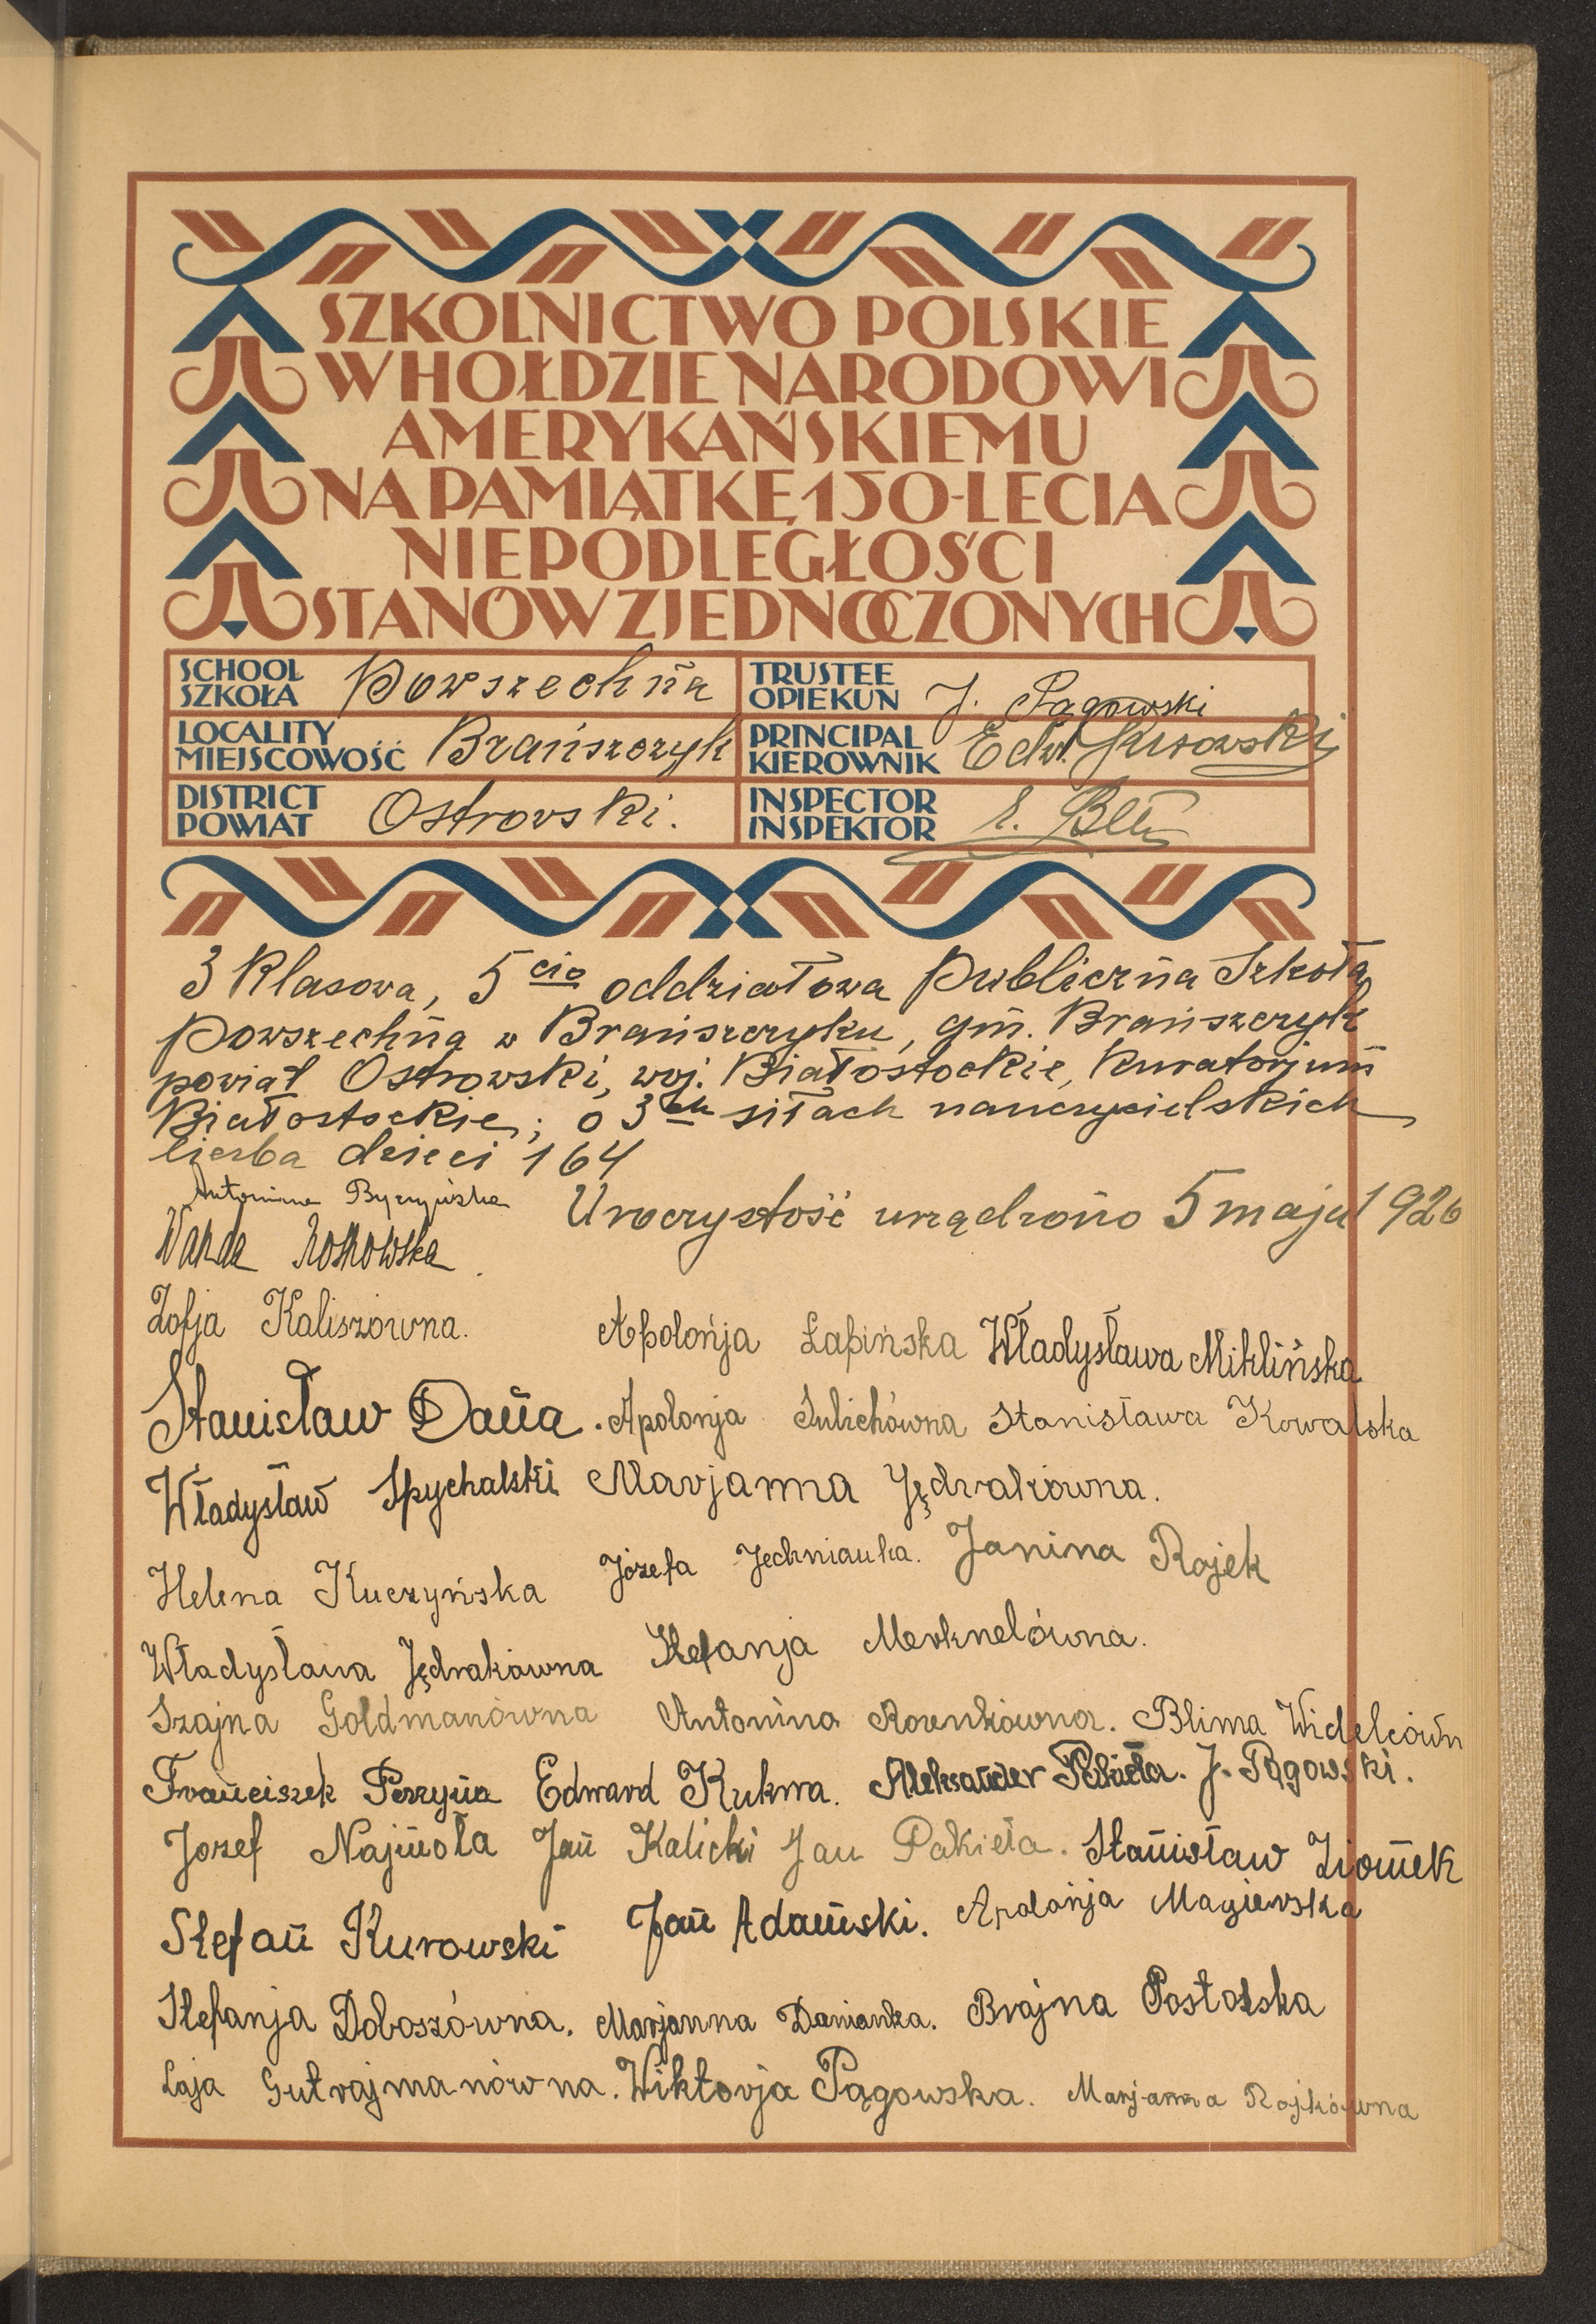 SZKOLNICTWO POLSKIE
W HOŁDZIE NARODOWI
AMERYKAŃSKIEMU
NA PAMIĄTKĘ 150-LECIA
NIEPODLEGŁOŚCI
STANÓW ZJEDNOCZONYCH
SCHOOL
SZKOŁA
Powszechna
TRUSTEE
OPIEKUN
J. Pągowski
LOCALITY
MIEJSCOWOŚĆ
Brańszczyk
PRINCIPAL
KIEROWNIK
Edw. Kurowski
DISTRICT
POWIAT
Ostrowski.
INSPECTOR
INSPEKTOR
3 Klasowa, 5 cio oddziałowa Publiczna Szkoła
Powszechna w Brańszczyku, gm. Brańszczyk
powiat Ostrowski, woj. Białostockie, Kuratorjum
Białostockie; o 3ch siłach nauczycielskich
liczba dzieci 164
Antonina
Uroczystość urządzono 5 maja 1926
Wanda
Zofja Kaliszówna.
Apolonja Łapińska Władysława Miklińska
Stanisław Dana. Apolonja Sulichówna Stanisława Kowalska
Władysław Spychalski Marjanna Jędrakówna.
Helena Kuczyńska Józefa Jechnianka. Janina Rojek
Władysława Jędrakówna Stefanja Merknelówna.
Szajna Goldmanówna Antonina Rozenkówna. Blima Widelcówn
Franciszek Peszyna Edward Kukwa. Aleksander Pakieła. J. Pągowski.
Jozef Najmoła Jan Kalicki Jan Pakieła. Stanisław Ziomek
Stefan Kurowski Jan Adamski. Apolonja Magiewska
Stefanja Doboszówna. Marjanna Danianka. Brajna Postolska
Łaja Gutrajmanówna. Wiktorja Pągowska. Marjanna Rojkówna